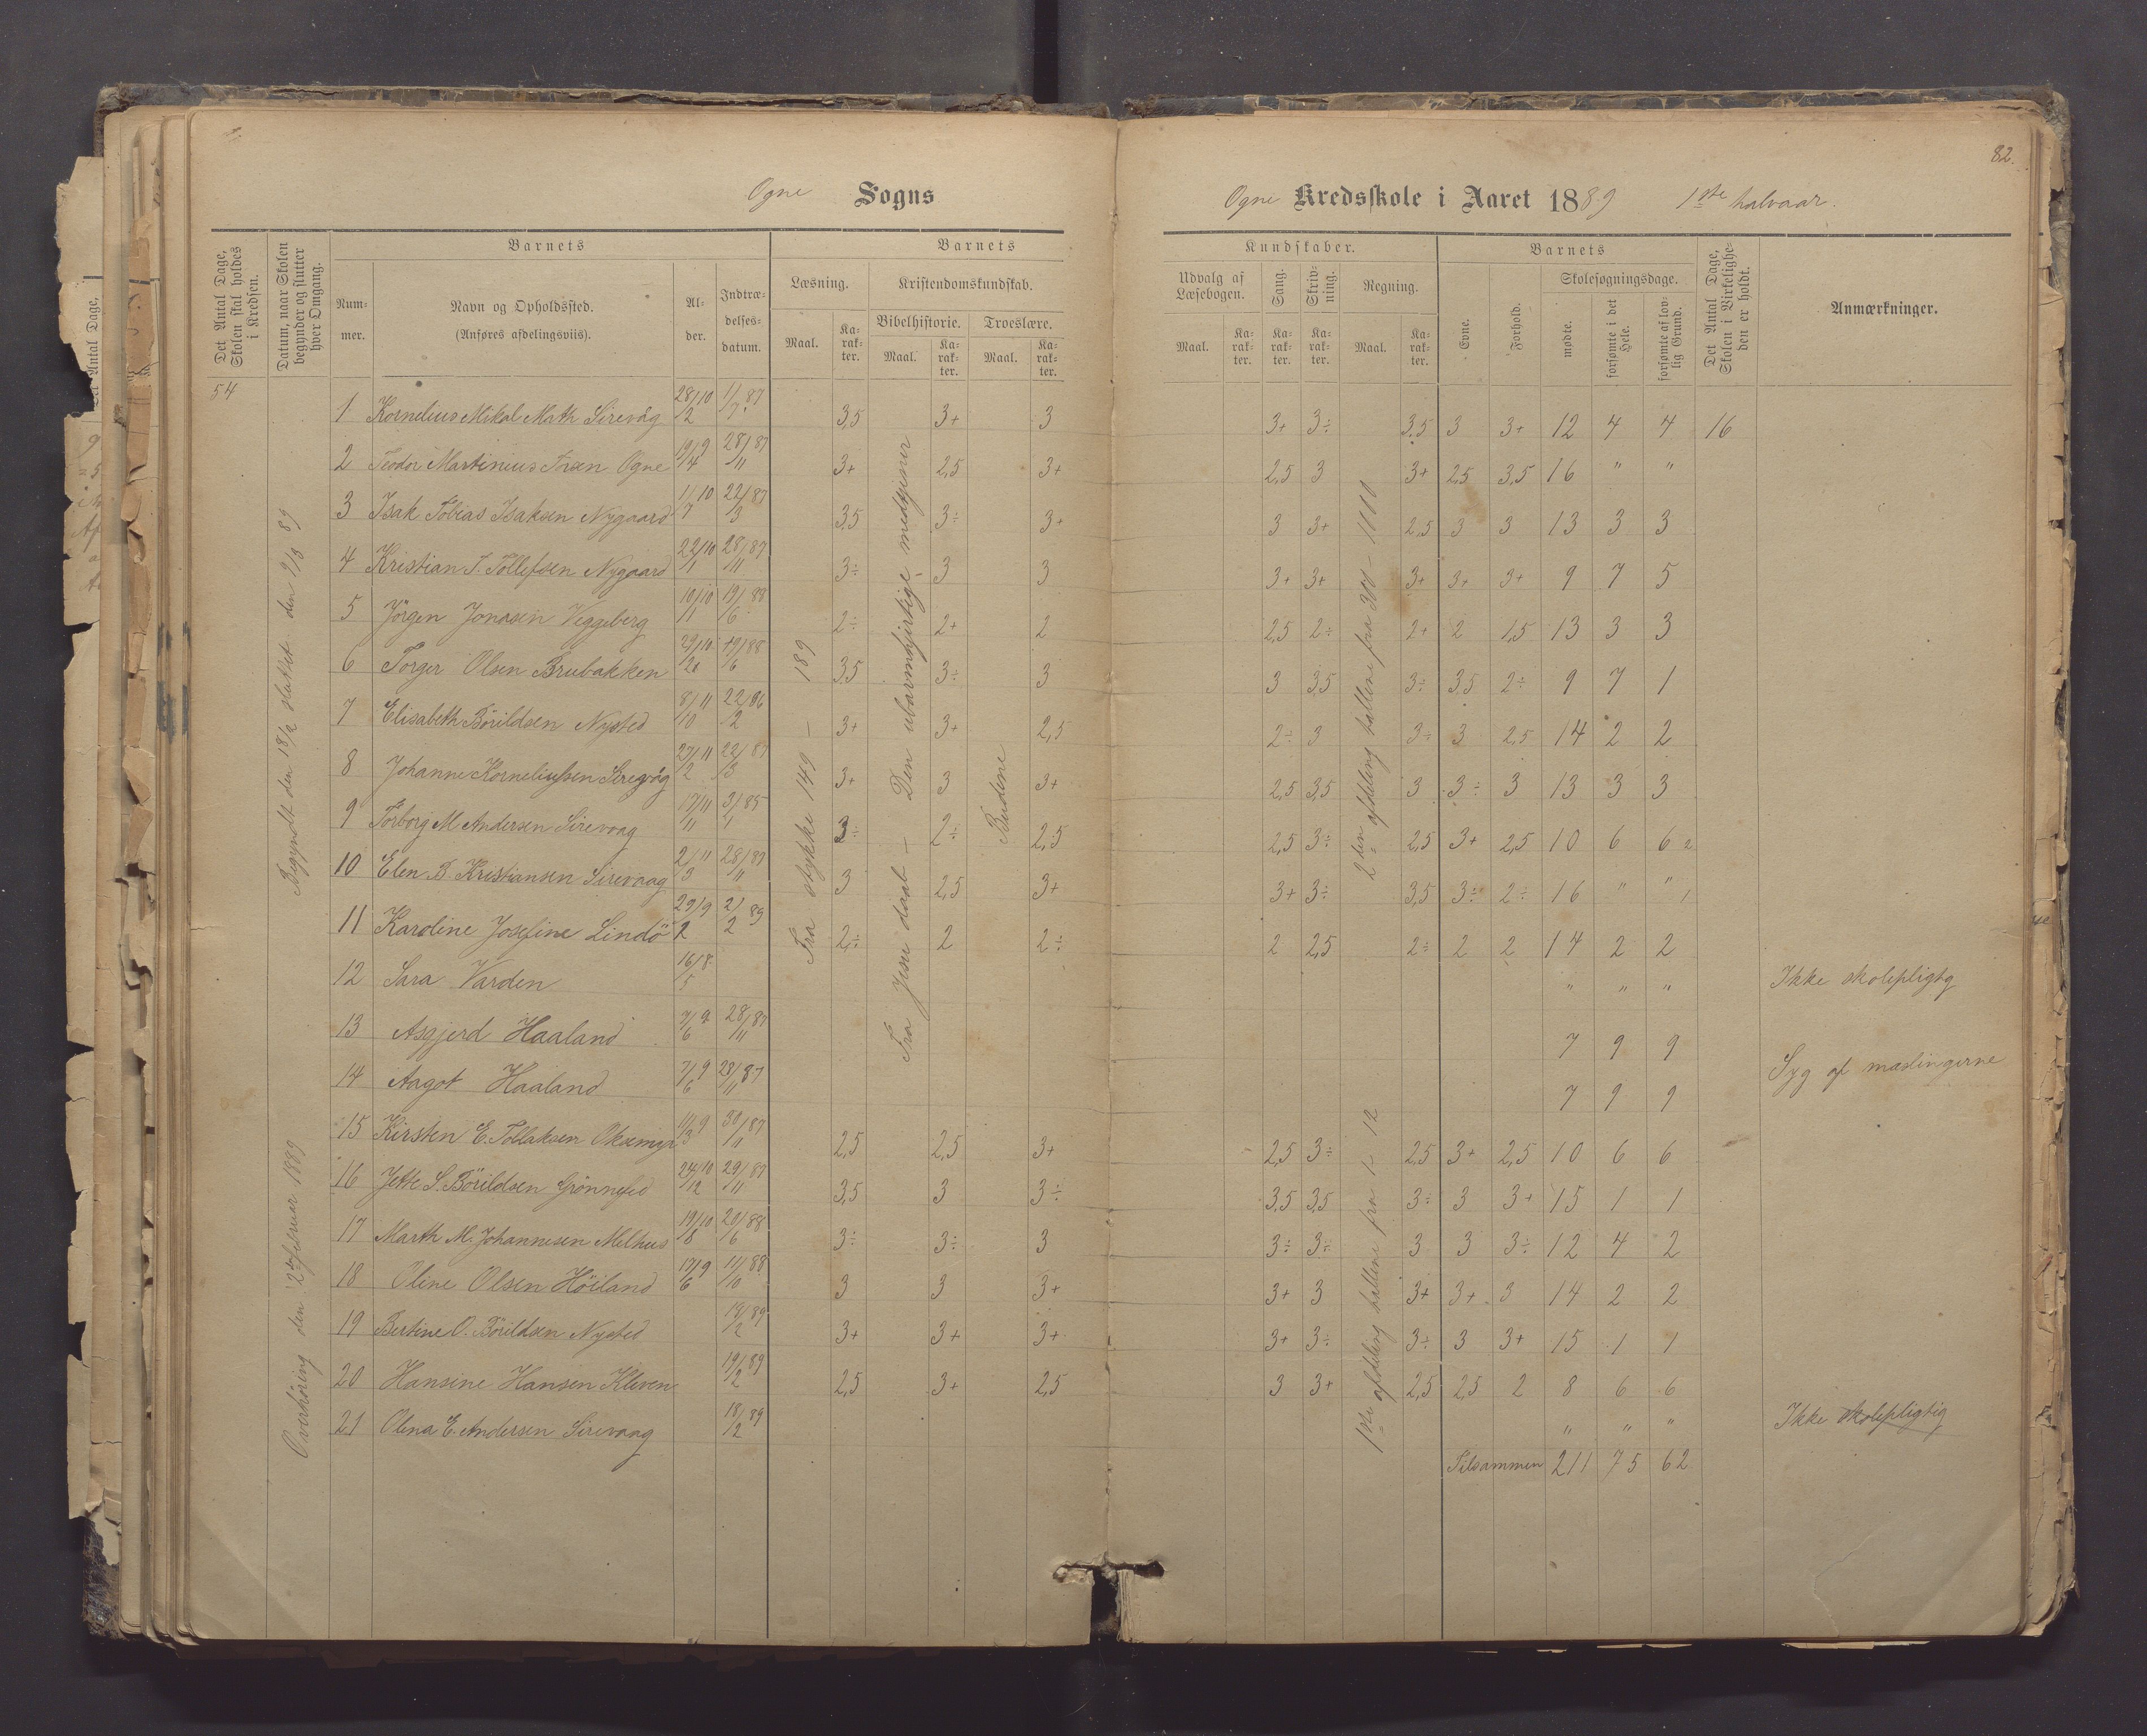 82.
Ogne Sogns
Ogne Kredsskole i Aaret 1889 1ste halvaar.
Det Antal Dage, Skolen skal holdes i Kredsen.
Datum, naar Skolen begynder og slutter hver Omgang.
Barnets
Nummer.
Navn og Opholdssted. (Anføres afdelingsviis).
Alder.
Indtrædelses-datum.
Barnets Kundskaber.
Læsning.
Maal.
Karakter.
Kristendomskundskab.
Bibelhistorie.
Maal.
Karakter.
Troeslære.
Maal.
Karakter.
Udvalg af Læsebogen.
Maal.
Karakter.
Sang.
Karakter.
Skrivning.
Karakter.
Regning.
Maal.
Karakter.
Barnets
Evne.
Forhold.
Skolesøgningsdage.
mødte.
forsømte i det Hele.
forsømte af lovlig Grund.
Det Antal Dage, Skolen i Virkeligheden er holdt.
Anmærkninger.
54
Begyndt den 18/2 sluttet den 9/3 89
Overhøring den 12te februar 1889
Fra stykke 149 – 189
Fra Jesu daab – Den ubarmhjertige medtjener
Budene
2den afdeling tallene fra 300 – 1000
1ste afdeling tallene fra 1 – 12
1 Kornelius Mikal Math Sirevåg 28/2 10 1/7 87 3,5 3+ 3 3+ 3÷ 3,5 3 3+ 12 4 4 16
2 Teodor Martinius Ogne 19/4 9 28/11 87 3+ 2,5 3+ 2,5 3 3+ 2,5 3,5 16 " "
3 Isak Tobias Isaksen Nygaard 11/7 10 22/3 87 3,5 3÷ 3+ 3 3+ 2,5 3 3 13 3 3
4 Kristian T. Tollefsen Nygaard 22/1 10 28/11 87 3÷ 3 3 3+ 3+ 3+ 3+ 3+ 9 7 5
5 Jörgen Jonasen Veggeberg 10/1 10 19/6 88 2÷ 2+ 2 2,5 2÷ 2+ 2 1,5 13 3 3
6 Torger Olsen Brubakken 10 19/6 88 3,5 3÷ 3 3 3,5 3÷ 3,5 2÷ 9 7 1
7 Elisabeth Börildsen Nysted 8/10 11 22/2 86 3+ 3+ 2,5 2÷ 3 3÷ 3 2,5 14 2 2
8 Johanne Korneliussen Sirevåg 27/2 11 22/3 87 3+ 3 3+ 2,5 3,5 3 3÷ 3 13 3 3
9 Torborg M. Andersen Sirevaag 17/11 11 3/1 85 3÷ 2÷ 2,5 2,5 3÷ 2,5 3+ 2,5 10 6 6 2
10 Elen B. Kristiansen Sirevaag 2/3 11 28/11 87 3 2,5 3+ 3+ 3÷ 3,5 3÷ 2÷ 16 " " 1
11 Karoline Josefine Lindö 29/2 9 2/2 89 2÷ 2 2÷ 2 2,5 2÷ 2 2 14 2 2
12 Sara Varden 16/5 8 " " " Ikke skolepligtg
13 Asgjerd Haaland 7/6 9 28/11 87 7 9 9
14 Aagot Haaland 7/6 9 28/11 87 7 9 9 Syg af mæslingerne
15 Kirsten E. Tollaksen 11/3 9 30/11 87 2,5 2,5 3+ 2,5 3÷ 2,5 3+ 2,5 10 6 6
16 Jette S. Börildsen 24/12 10 29/11 87 3,5 3 3÷ 3,5 3,5 3÷ 3 3+ 15 1 1
17 Marth M. Johannesen Melhus 19/8 10 20/6 88 3÷ 3÷ 3 3÷ 3÷ 3 3 3÷ 12 4 2
18 Oline Olsen Höiland 17/6 9 11/10 88 3 3 3+ 3+ 3 3+ 3+ 3 14 2 2
19 Bertine O. Börildsen Nysted 19/2 89 3+ 3+ 3+ 3+ 3÷ 3÷ 3 3+ 15 1 1
20 Hansine Hansen Kleven 19/2 89 2,5 3+ 2,5 3 3+ 2,5 2,5 2 8 6 6
21 Olena E. Andersen Sirevaag 18/2 89 " " " Ikke skolepligtig
Tilsammen 211 75 62